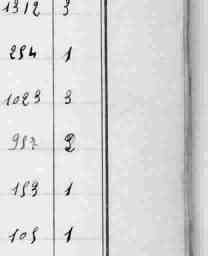 1312 3
254 1
1023 3
957 2
153 1
105 1